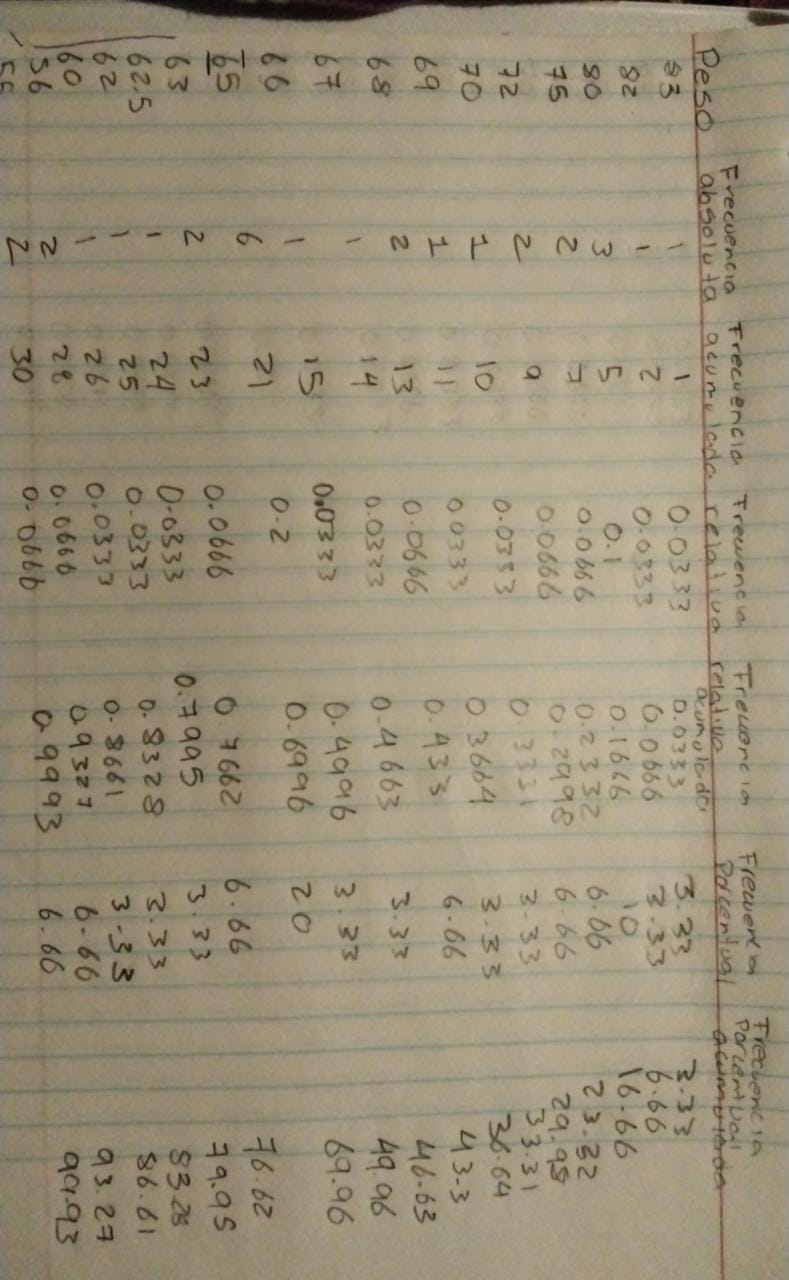 Peso Frecuencia absoluta Frecuencia acumulada Frecuencia relativa Frecuencia relativa acumulado Frecuencia Porcentual Frecuencia Porcentual acumulada
83 1 1 0.0333 0.0333 3.33 3.33
82 1 2 0.0333 0.0666 3.33 6.66
80 3 5 0.1 0.1666 10 16.66
75 2 7 0.0666 0.2332 6.66 23.32
72 2 9 0.0666 0.2998 6.66 29.98
70 1 10 0.0333 0.3331 3.33 33.31
69 1 11 0.0333 0.3664 3.33 36.64
68 2 13 0.0666 0.433 6.66 43.3
67 1 14 0.0333 0.4663 3.33 46.63
66 1 15 0.0333 0.4996 3.33 49.96
65 6 21 0.2 0.6996 20 69.96
63 2 23 0.0666 0.7662 6.66 76.62
62.5 1 24 0.0333 0.7995 3.33 79.95
62 1 25 0.0333 0.8328 3.33 83.28
60 1 26 0.0333 0.8661 3.33 86.61
56 2 28 0.0666 0.9327 6.66 93.27
55 2 30 0.0666 0.9993 6.66 99.93